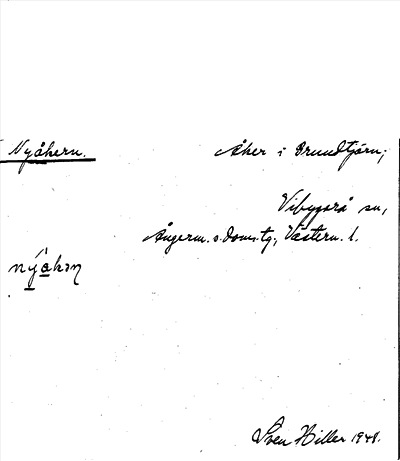 Nyåkern. Åker i Brundtjärn;
Vibyggrå sn,
Ångerm. s. doms. tg., Västern. l.
nýakən
Sven Hiller 1948.